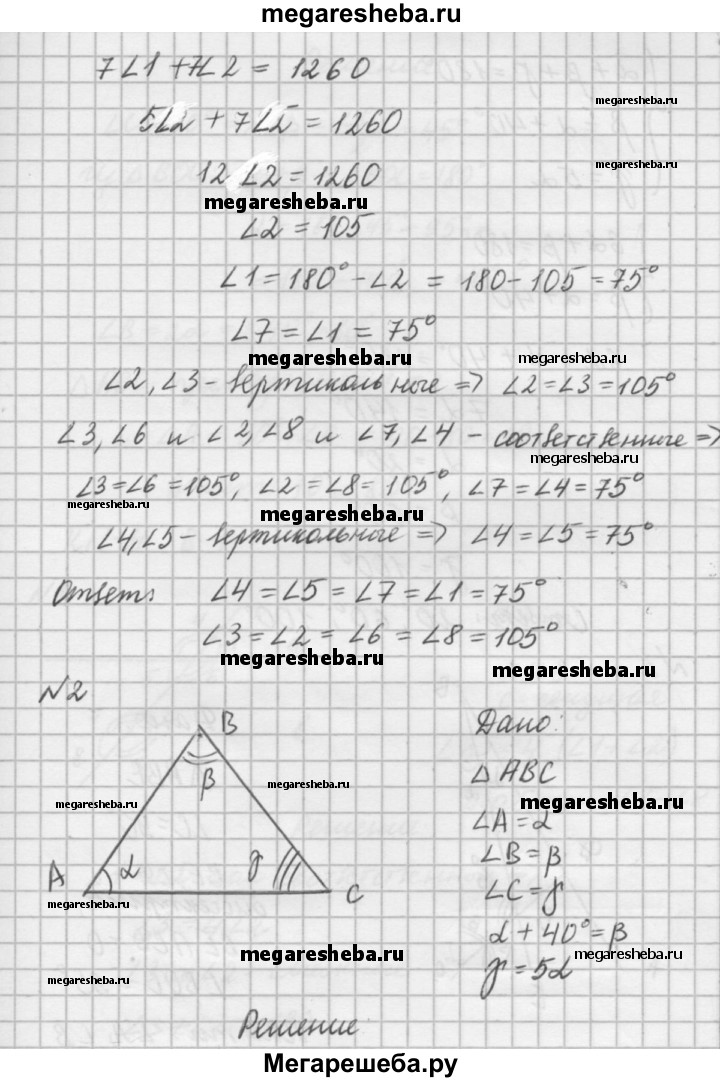 megaresheba.ru
7∠1 + 7∠2 = 1260
megaresheba.ru
5∠2 + 7∠2 = 1260
12∠2 = 1260
megaresheba.ru
megaresheba.ru
∠2 = 105
∠1 = 180° - ∠2 = 180 - 105 = 75°
∠7 = ∠1 = 75°
megaresheba.ru megaresheba.ru
∠2, ∠3 - вертикальные => ∠2 = ∠3 = 105°
∠3, ∠6 и ∠2, ∠8 и ∠7, ∠4 - соответственные =>
megaresheba.ru
∠3 = ∠6 = 105°, ∠2 = ∠8 = 105°, ∠7 = ∠4 = 75°
megaresheba.ru megaresheba.ru
∠4, ∠5 - вертикольные => ∠4 = ∠5 = 75°
Ответ: ∠4 = ∠5 = ∠7 = ∠1 = 75°
∠3 = ∠2 = ∠6 = ∠8 = 105°
megaresheba.ru megaresheba.ru
№2
B
β
A α γ C
Дано:
△ABC
∠A = α
∠B = β
∠C = γ
α + 40° = β
γ = 5α
megaresheba.ru
megaresheba.ru
megaresheba.ru
megaresheba.ru
megaresheba.ru
megaresheba.ru
megaresheba.ru
Решение
Мегарешеба.ру